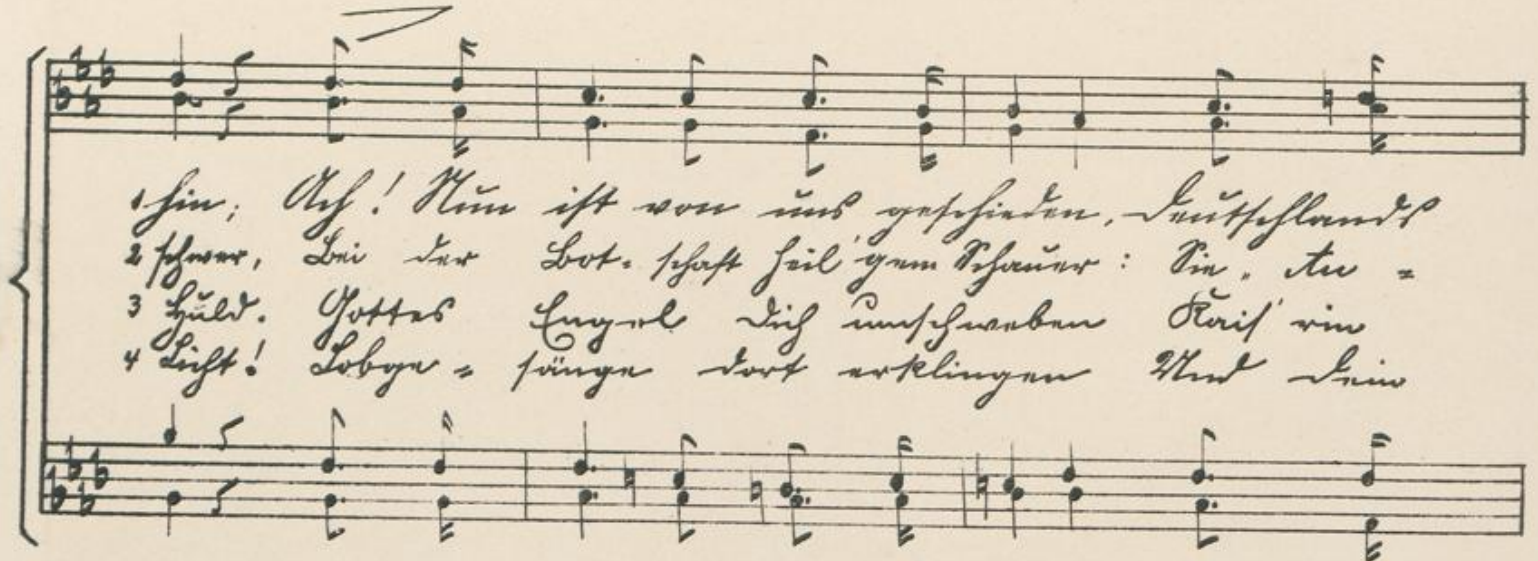 1 hin; Ach! Nun ist von uns geschieden, Deutschlands
2 schwer, Bei der Bot- schaft heil'gem Schauer: Sie, An -
3 Huld. Gottes Engel dich umschweben Kais'rin
4 Licht! Lobge - sänge dort erklingen Und dein